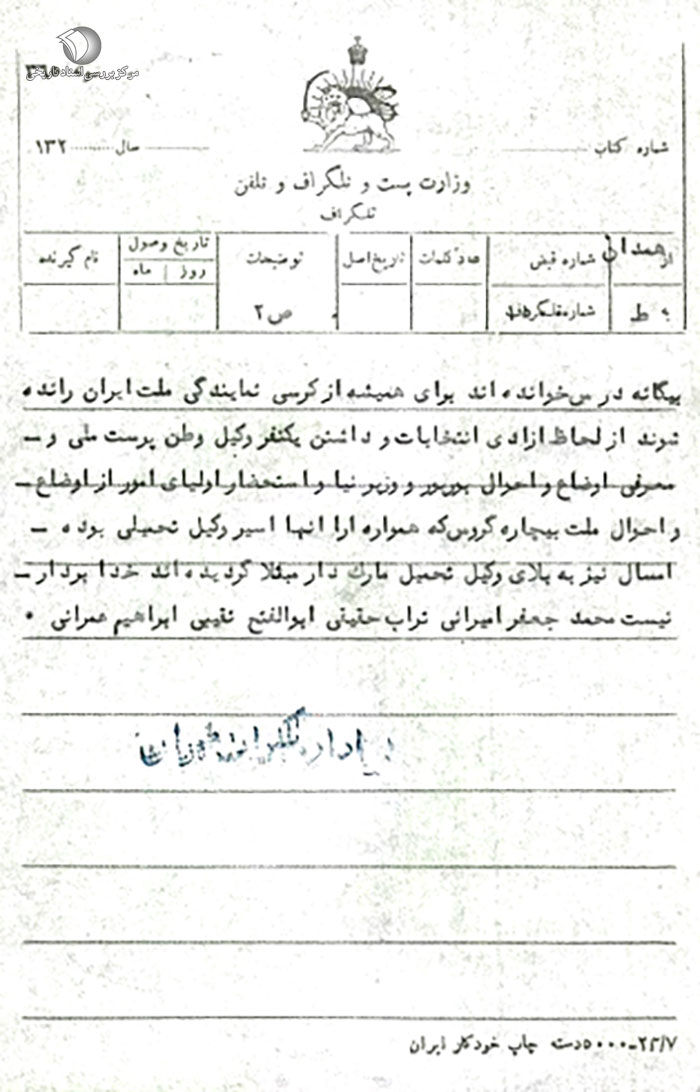 مرکز بررسی اسناد تاریخی
شماره کتاب
سال ۱۳۲
وزارت پست و تلگراف و تلفن
تلگراف
از همدان
شماره قبض
عدد کلمات
تاریخ اصل
توضیحات
تاریخ وصول
روز ماه
نام گیرنده
به ط
شماره تلگراف
ص ۲
بیگانه درس خوانده اند برای همیشه از کرسی نمایندگی ملت ایران رانده
شوند از لحاظ ازادی انتخابات و داشتن یکنفر وکیل وطن پرست ملی و ــ
معرفی اوضاع و احوال پورپور و وزیر نیا و استحضار اولیای امور از اوضاع ــ
و احوال ملت بیچاره گروس که همواره ارا انها اسیر وکیل تحمیلی بوده ــ
امسال نیز به بلای وکیل تحمیل مارک دار مبتلا گردیده اند خدا بردار ــ
نیست محمد جعفر امیرانی تراب حقیقی ابوالفتح نقیبی ابراهیم عمرانی ۰
۲۳/۷ــ۵۰۰۰ دسته چاپ خودکار ایران